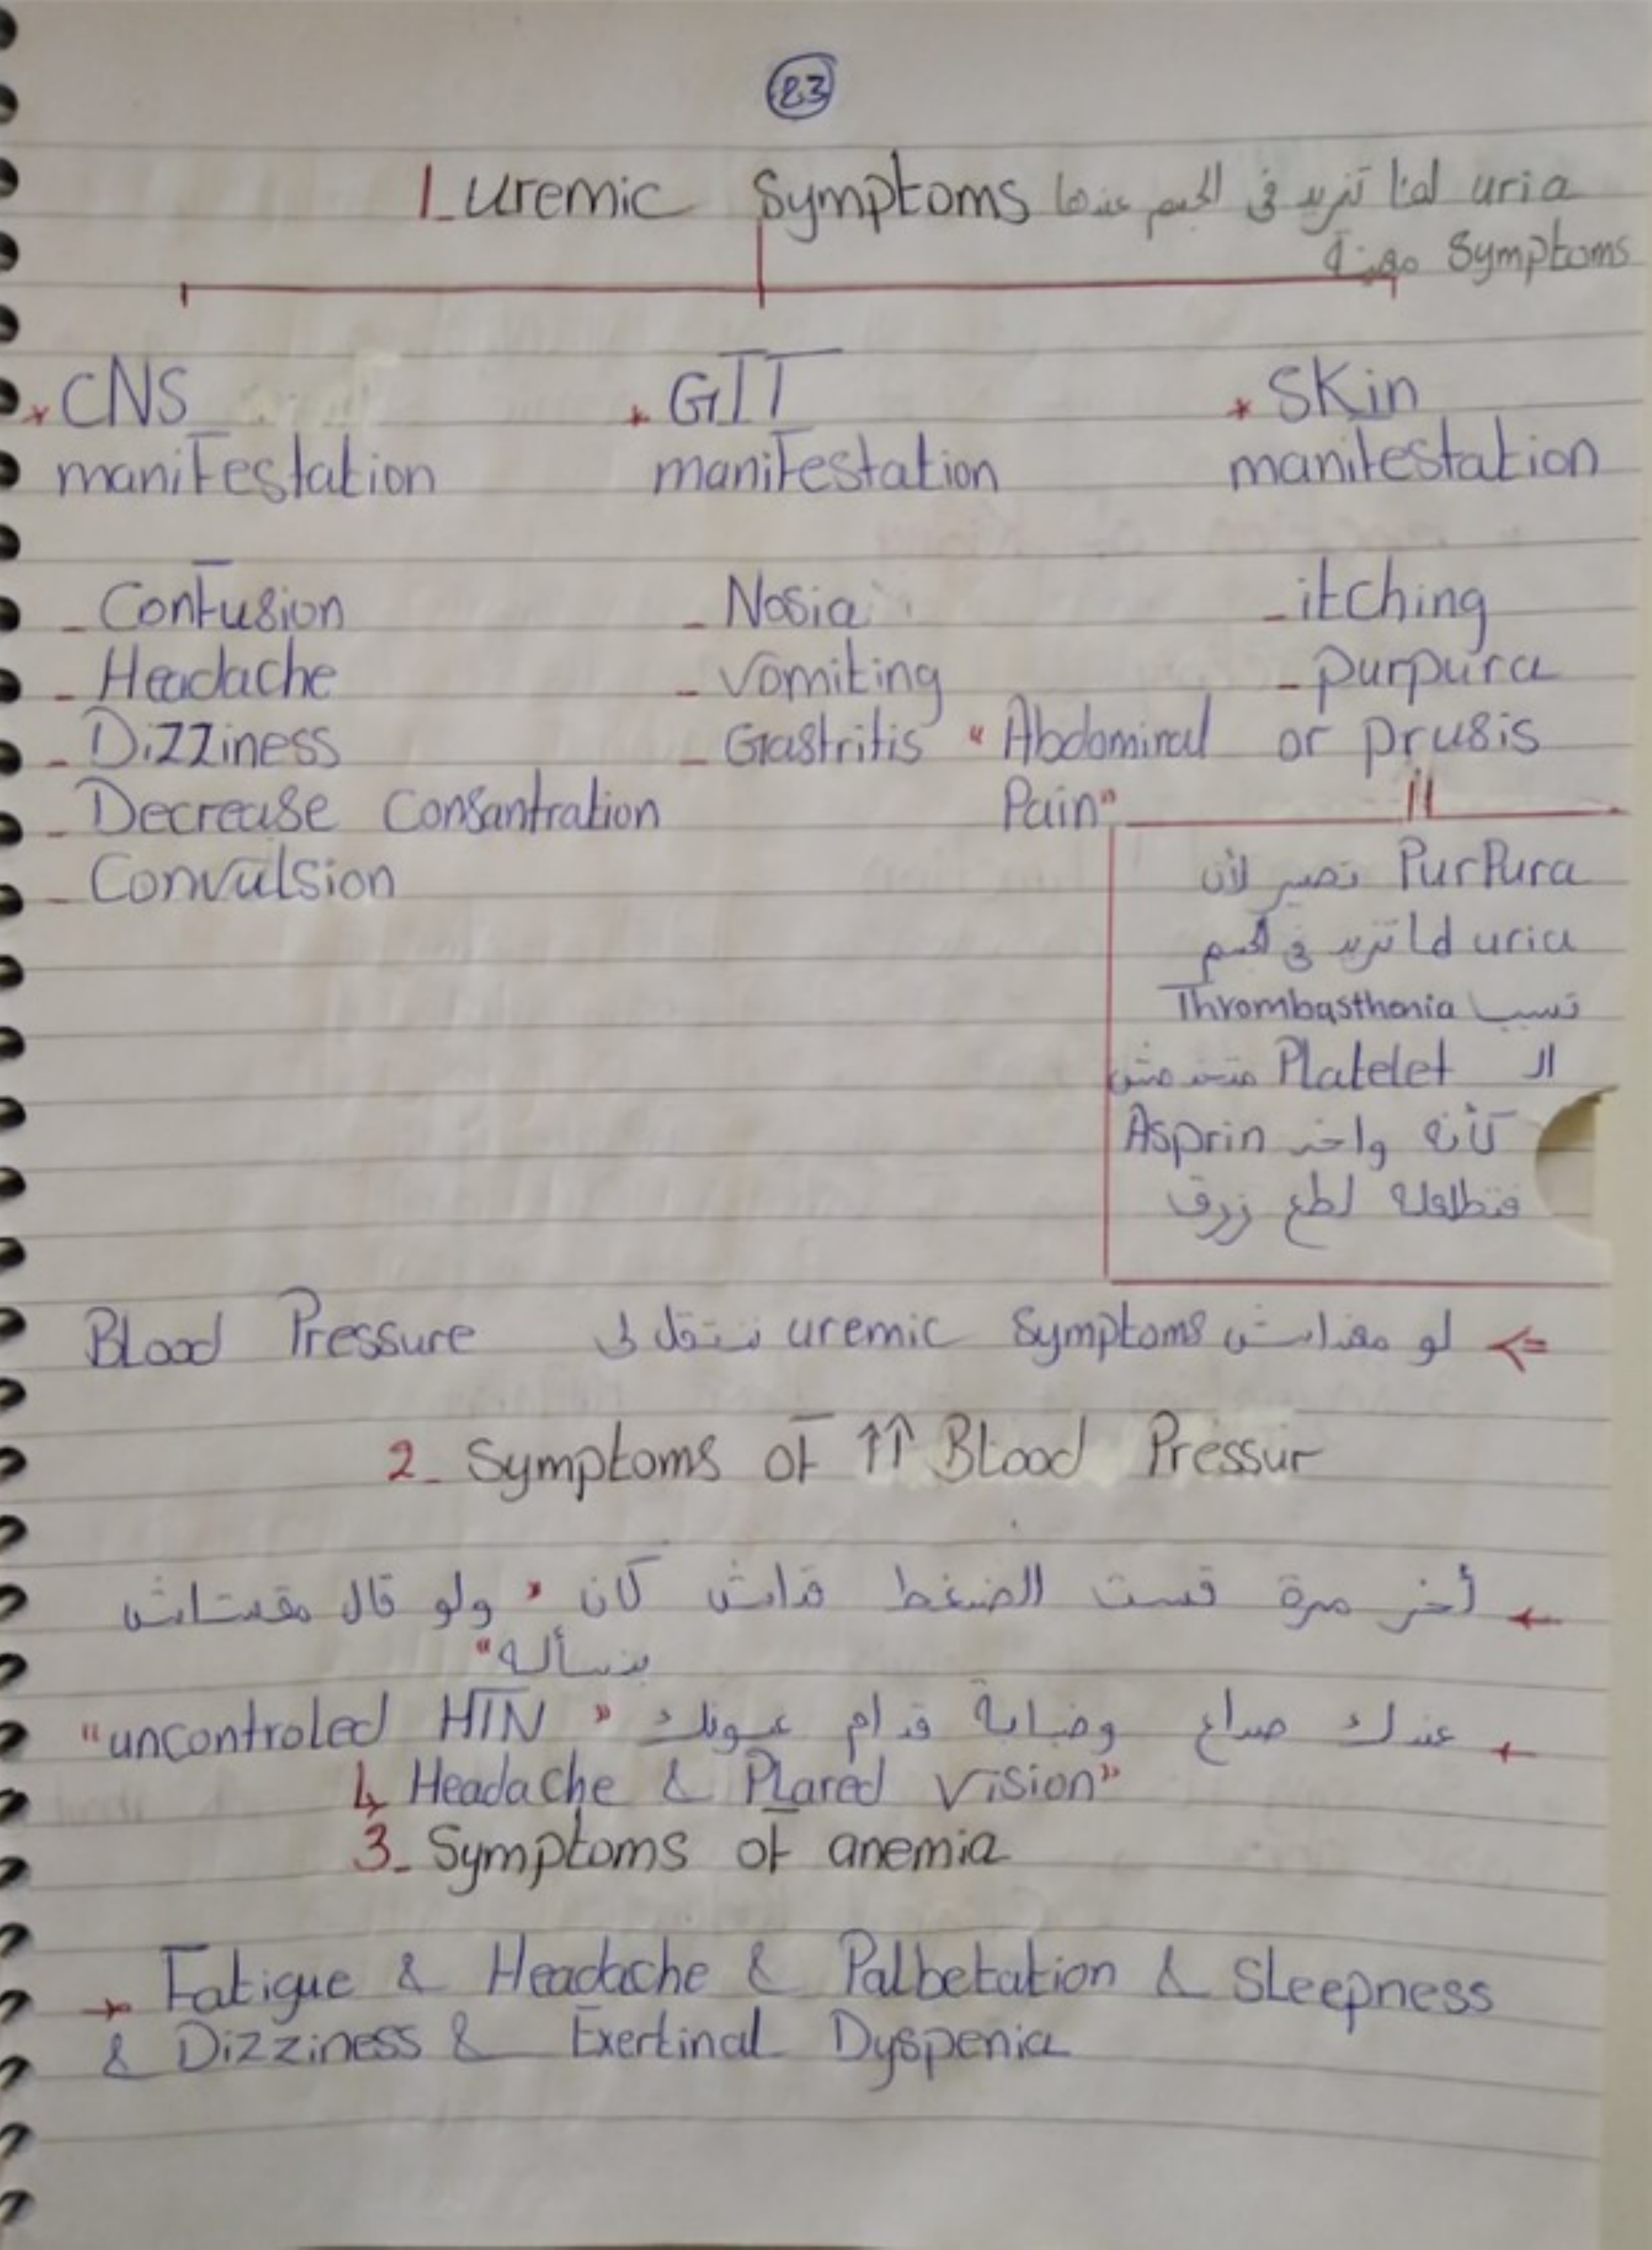 23
1_ uremic Symptoms uria لما تزيد في الجسم عندها
Symptoms معينة
* CNS
manifestation
* GIT
manifestation
* SKin
manifestation
_ Confusion
_ Headache
_ Dizziness
_ Decrease Consantration
_ Convulsion
_ Nosia
_ Vomiting
_ Gastritis "Abdominal
Pain"
_ itching
_ purpura
or prusis
PurPura تصير لأن
uria لما تزيد في الجسم
تسبب Thrombasthenia
الـ Platelet
كأنه واخد Asprin
فتطلعله لطع زرق
⇐ لو معنداش uremic Symptoms ننتقل لـ Blood Pressure
2_ Symptoms of ↑↑ Blood Pressur
← أخر مرة قست الضغط قداش كان "ولو قال مقستاش
بنسأله"
← عندك صداع وضبابة قدام عيونك "uncontroled HTN"
↳ Headache & Plared Vision"
3_ Symptoms of anemia
→ Fatigue & Headache & Palbetation & Sleepness
& Dizziness & Exertinal Dyspenia